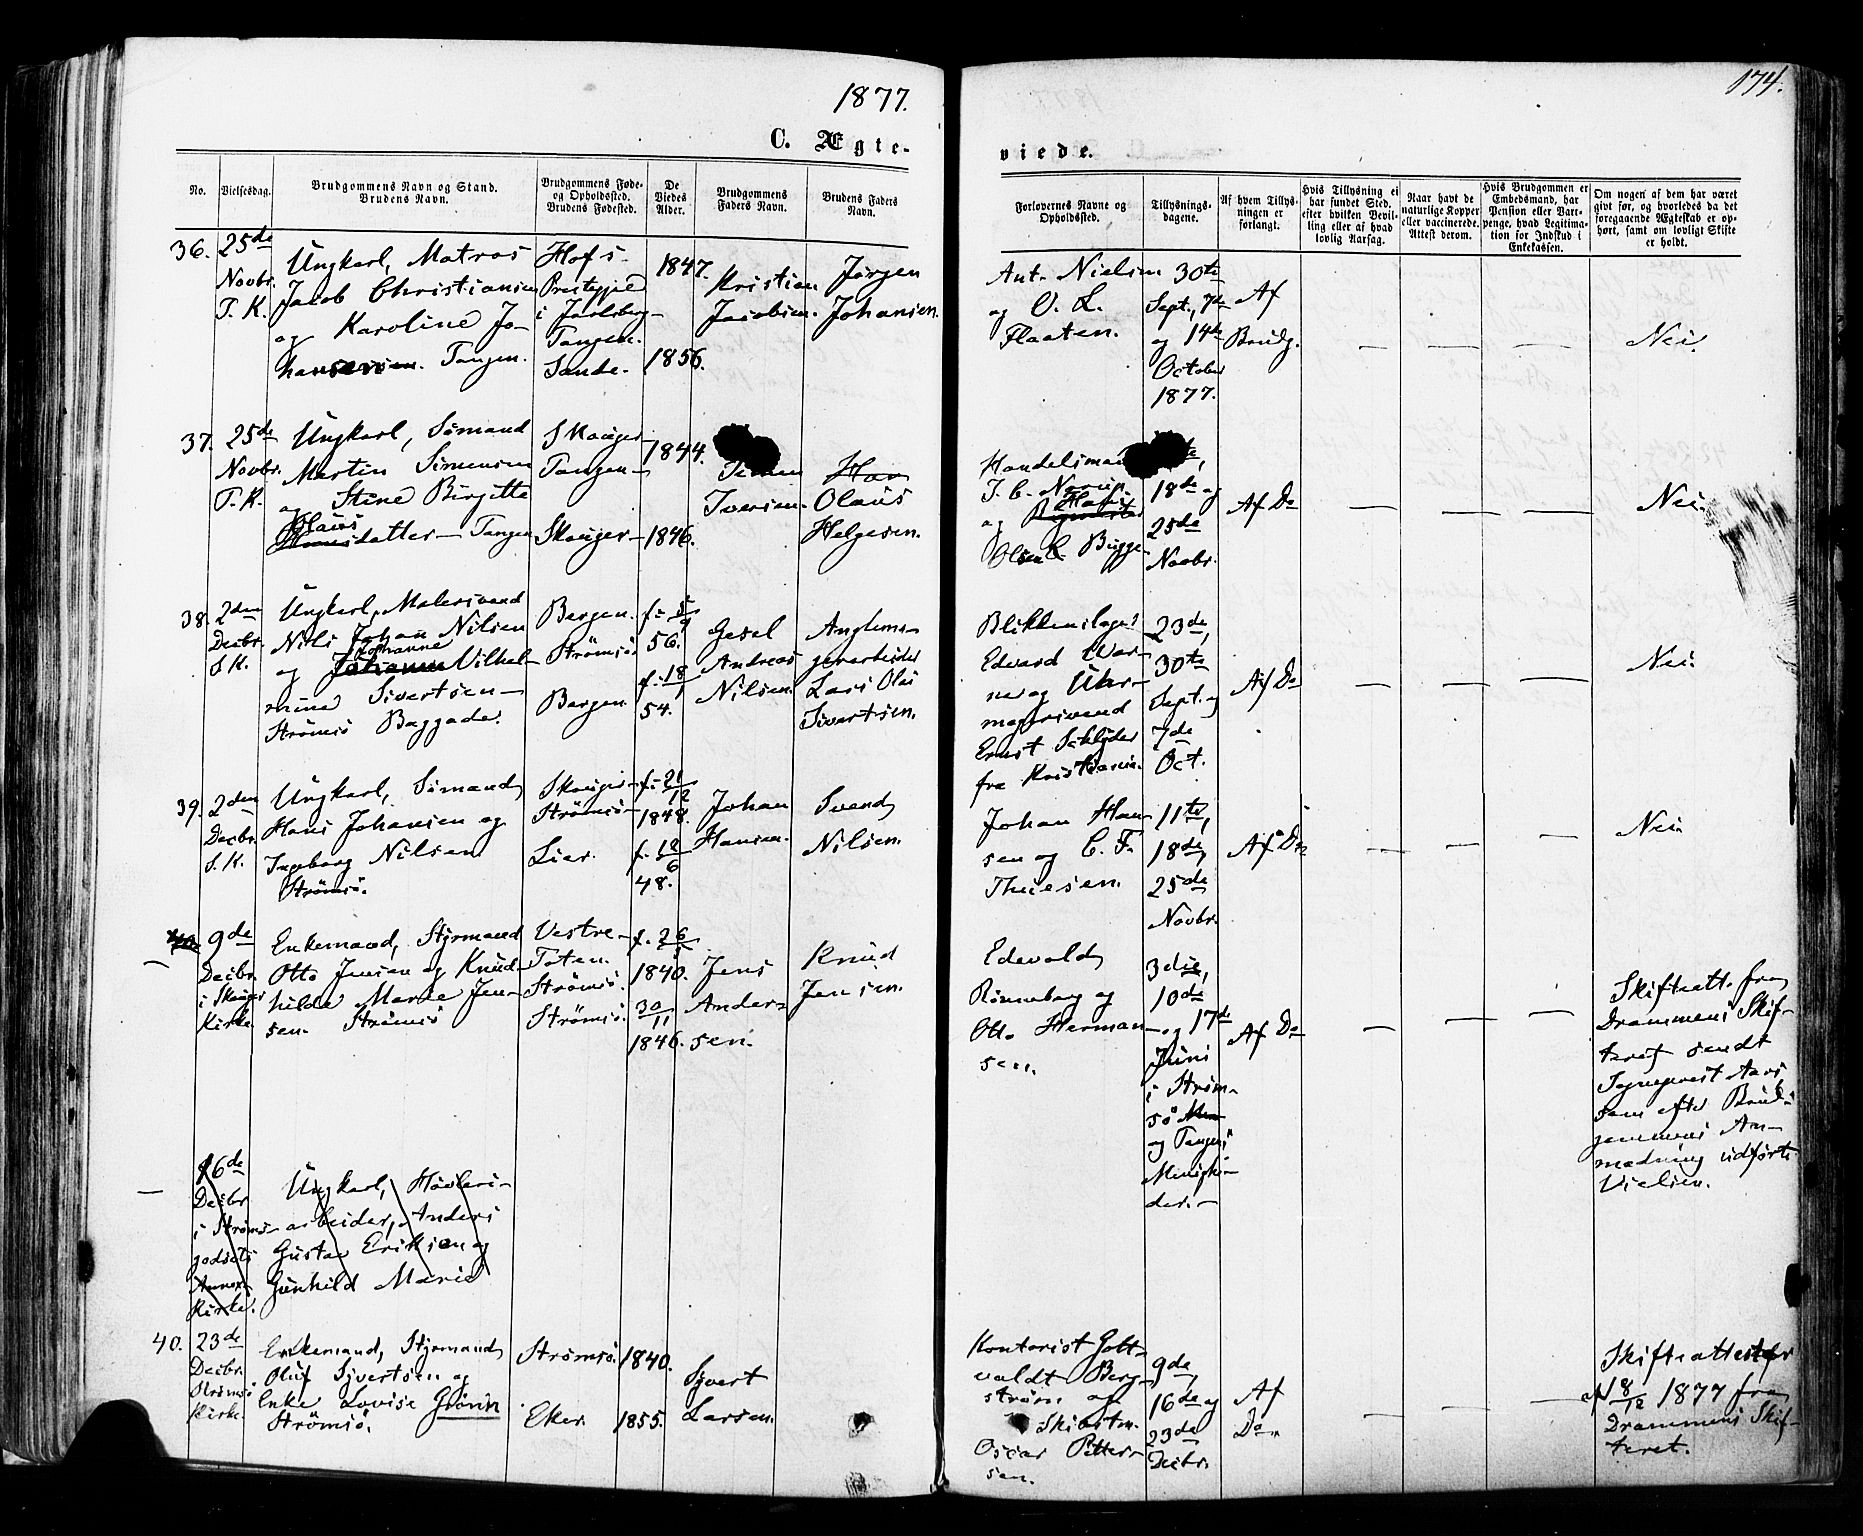 1877.
174.
C. Ægte-
viede.
No.
Vielsesdag.
Brudgommens Navn og Stand.
Brudens Navn.
Brudgommens Føde-
og Opholdsted.
Brudens Fødested.
De
Viedes
Alder.
Brudgommens
Faders Navn.
Brudens Faders
Navn.
Forlovernes Navne og
Opholdsted.
Tillysnings-
dagene.
Af hvem Tillys-
ningen er
forlangt.
Hvis Tillysning ei
har fundet Sted,
efter hvilken Bevil-
ling eller af hvad
lovlig Aarsag.
Naar havt de
naturlige Kopper
eller vaccinerede.
Attest derom.
Hvis Brudgommen er
Embedsmand, har
Pension eller Vart-
penge, hvad Legitima-
tion for Indskud i
Enkekassen.
Om nogen af dem har været
gift før, og hvorledes da det
foregaaende Ægteskab er op-
hørt, samt om lovligt Skifte
er holdt.
36.
25de
Novbr.
T. K.
Ungkarl, Matros
Jacob Christiansen
og Karoline Jo-
hansen. Tangen.
Hofs
Prestegjeld
i Jarlsberg
Tangen.
Sande.
1847.
1856.
Kristian
Jacobsen.
Jørgen
Johansen.
Ant. Nielsen
og O. L.
Flaaten.
30te
Sept., 7de
og 14de
October
1877.
Af
Brudg.
Nei.
37.
25de
Novbr.
T. K.
Ungkarl, Sømand
Martin Simensen
og Stine Birgitte
Olaus
datter - Tangen
Skouger-
Tangen-
Skouger-
1844.
1846.
Iversen.
Olaus
Helgesen.
Handelsmand
J. C. Noren
og
Olsen Bugge
18de og
25de
Novbr.
Af Do
Nei.
38.
2den
Decbr.
S. K.
Ungkarl, Malersvend
Nils Johan Nilsen
Johanne
og Vilhel-
mine Sivertsen-
Strømsø Baggade.
Bergen.
Strømsø
Bergen.
56.
f. 18/1
54.
Gesel
Andreas
Nilsen.
Lars Olai
Sivertsen.
Blikkenslager
Edvard War-
ner og Uhr-
magersvend
Ernst Schlyder
fra Kristiania.
23de,
30te
Sept. og
7de
Oct.
Af Do
Nei.
39.
2den
Decbr.
S. K.
Ungkarl, Sømand
Hans Johansen og
Ingeborg Nilsen
Strømsø.
Skouger-
Strømsø-
Lier.
f. 21/12
1848.
f. 18/6
48.
Johan
Hansen.
Svend
Nilsen.
Johan Han-
sen og C. F.
Thiesen.
11te,
18de,
25de
Novbr.
Af Do
Nei.
9de
Decbr.
i Skouger
Kirke.
Enkemand, Styrmand
Otto Jensen og Knud-
hilde Marie Jen-
sen. Strømsø
Vestre-
Toten.
Strømsø.
Strømsø.
1840.
30/11
1846.
Jens
Ander-
sen.
Knud
Jensen.
Edevald
Rønneberg og
Otto Herman-
sen.
3die,
10de
og 17de
Juni
i Strøm-
sø
og Tangens
Menighe-
der.-
Af Do
Skifteatt. fra
Drammens Skif-
teret sendt
Sogneprest Aars
som efter Brud-
gommens An-
modning udførte
Vielsen.
16de
Decbr.
i Strøms-
godsets
Annex-
Kirke.
Ungkarl, Høvleri-
arbeider, Anders
Gustav Eriksen og
Gunhild Marie
40.
23de
Decbr.
Strømsø
Kirke.
Enkemand, Styrmand
Oluf Syvertsen og
Enke Lovise Grønn
Strømsø.
Strømsø.
Eker.
1840.
1855.
Syvert
Larsen.
Kontorist Gott-
valdt Berg-
strøm og
Skibstm.
Oscar Petter-
sen.
9de,
16de og
23de
Decbr.
Af
Do.
Skifteattest
af 18/12 1877 fra
Drammens Skif-
teret.